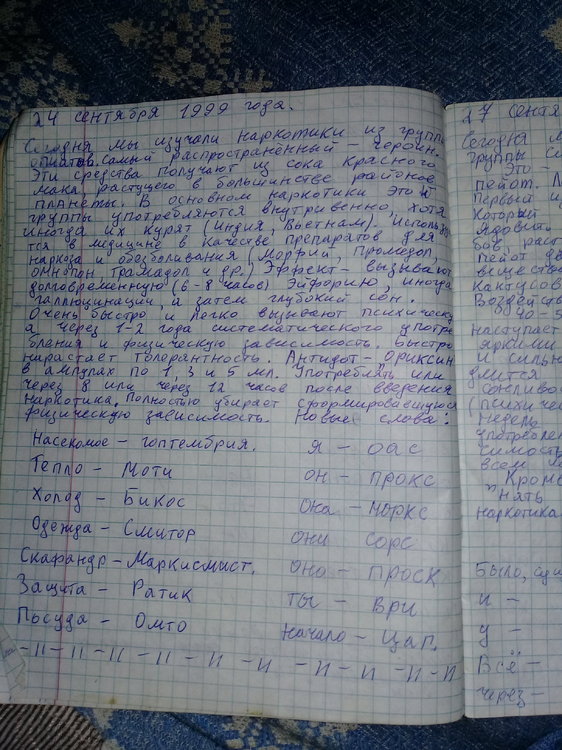 24 сентября 1999 года.
Сегодня мы изучали наркотики из группы
опиатов. Самый распространённый – героин.
Эти средства получают из сока красного
мака, растущего в большинстве районов
планеты. В основном наркотики этой
группы употребляются внутривенно, хотя
иногда их курят (Индия, Вьетнам). Использую-
тся в медицине в качестве препаратов для
наркоза и обезболивания (Морфий, Промедол,
омнопон, трамадол и др.) Эффект – вызывают
долговременную (6-8 часов) Эйфорию, иногда
галлюцинации, а затем глубокий сон.
Очень быстро и легко вызывают психическу
а через 1-2 года систематического употре
бления и физическую зависимость. Быстро
нарастает толерантность. Антидот – Ориксин
в ампулах по 1, 3 и 5 мл. Употреблять или
через 8 или через 12 часов после введения
наркотика. Полностью убирает сформировавшуюся
физическую зависимость. Новые слова:
Насекомое – гоптембрия.
Тепло – Моти
Холод – Бикос
Одежда – Смитор
Скафандр – Маркисмист.
Защита – Ратик
Посуда – Омто
я – оас
он – прокс
она – моркс
они сорс
оно – проск
ты – ври
начало – цап.
– 11 – 11 – 11 – 11 – 11 – 11 – 11 – 11 – 11 – 11
27 сентя
Сегодня м
группы
Это –
пейот.
Первый
который
ядовить
бов, раст
пейот
вещество
кактусов
Воздейств
40-5
наступает
яркими
и сильн
длится
сонливо
(психичес
недель
употреблен
симость
всем
Кроме
нять
наркотика
Было,
и –
у –
Всё –
через –